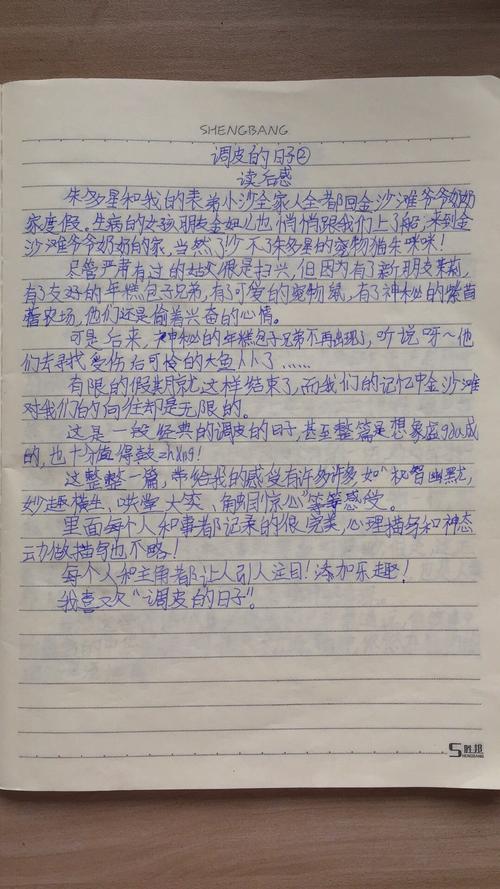 SHENGBANG
调皮的日子②
读后感
朱多星和我的表弟小沙全家人全都回金沙滩爷爷奶奶
家度假。生病的女孩朋友金妞儿也悄悄跟我们上了船,来到金
沙滩爷爷奶奶的家,当然了少不了朱多星的宠物猪朱咪咪!
尽管严肃有过的姑父很是扫兴,但因为有了新朋友茉莉,
有了友好的年糕包子兄弟,有了可爱的宠物鼠,有了神秘的紫苜
蓿农场,他们还是偷着兴奋的心情。
可是后来,神秘的年糕包子兄弟不再出现了,听说呀~他
们去寻找受伤后可怜的大鱼人小丫……
有限的假期就这样结束了,而我们的记忆中金沙滩
对我们的向往却是无限的。
这是一段经典的调皮的日子,甚至整篇是想象虚gòu成
的,也十分值得鼓zhǎng!
这整整一篇,带给我的感受有许多许多,如"机智幽默,
妙趣横生、哄堂大笑、触目惊心"等等感受。
里面每个人和事都记录的很完美,心理描写和神态
动做描写也不略!
每个人和主角都让人引人注目!添加乐趣!
我喜欢"调皮的日子"。
S胜邦
SHENGBANG